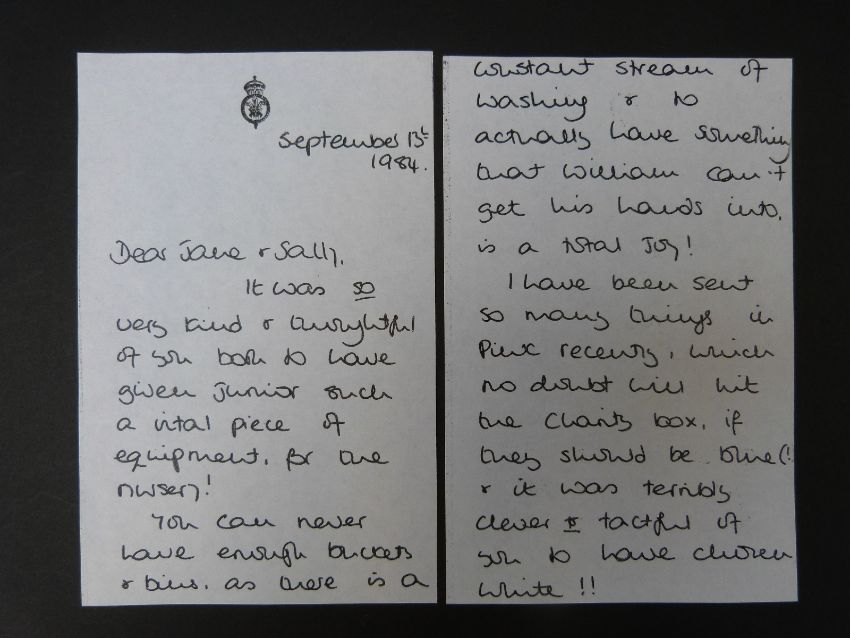 September 13th
1984.
Dear Jane & Sally,
It was so
very kind & thoughtful
of you both to have
given junior such
a vital piece of
equipment, for the
nursery!
You can never
have enough buckets
& bins, as there is a
constant stream of
washing & to
actually have something
that William can't
get his hands into,
is a total joy!
I have been sent
so many things in
Pink recently, which
no doubt will hit
the Charity box, if
they should be blue(!
& it was terribly
clever & tactful of
you to have chosen
White !!